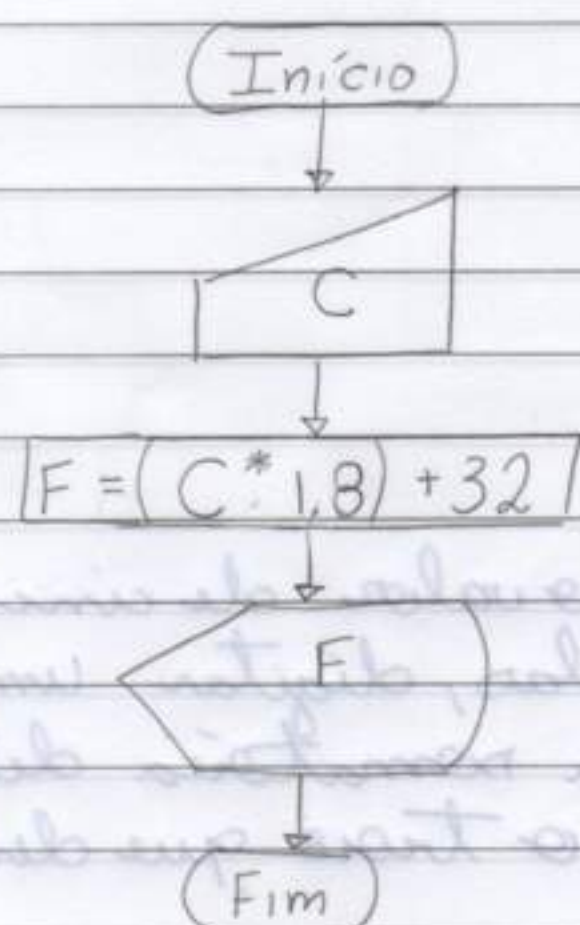 Início
C
F = (C * 1,8) + 32
F
Fim